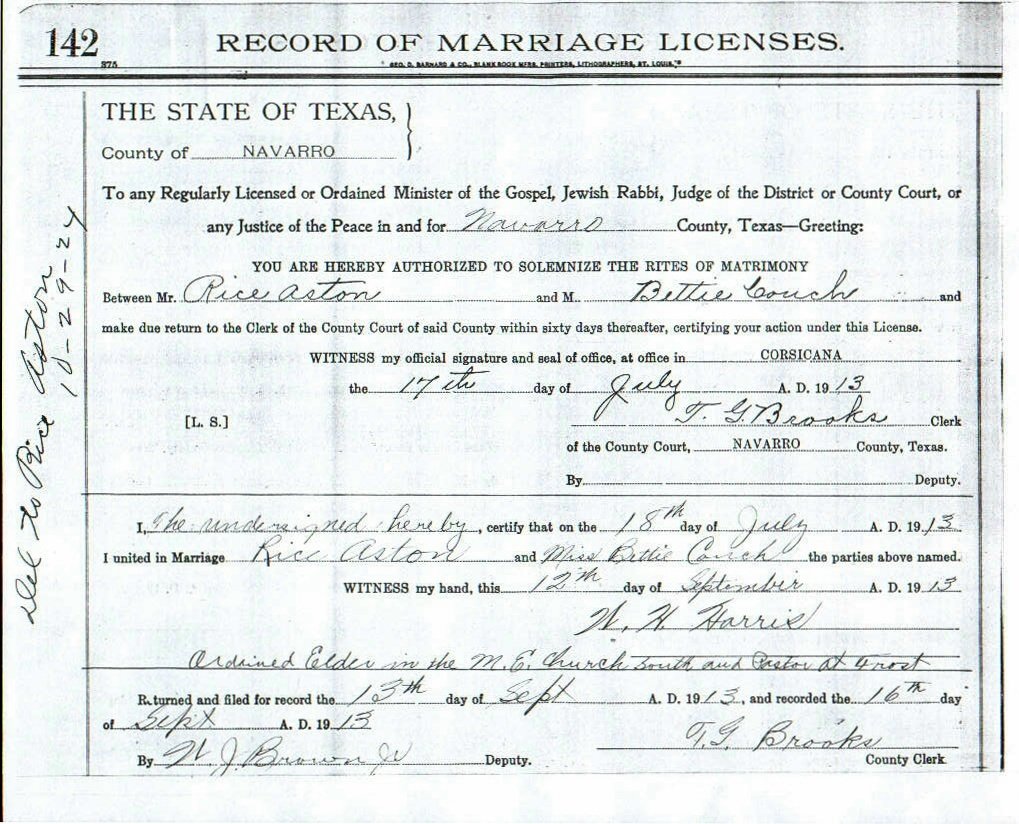 142 RECORD OF MARRIAGE LICENSES.
375 GEO. D. BARNARD & CO., BLANK BOOK MFRS. PRINTERS, LITHOGRAPHERS, ST. LOUIS.
THE STATE OF TEXAS,
County of NAVARRO
To any Regularly Licensed or Ordained Minister of the Gospel, Jewish Rabbi, Judge of the District or County Court, or
any Justice of the Peace in and for Navarro County, Texas—Greeting:
YOU ARE HEREBY AUTHORIZED TO SOLEMNIZE THE RITES OF MATRIMONY
Between Mr. Rice Aston and M. Bettie Couch and
make due return to the Clerk of the County Court of said County within sixty days thereafter, certifying your action under this License.
WITNESS my official signature and seal of office, at office in CORSICANA
the 17th day of July A. D. 1913
[L. S.] T. G. Brooks Clerk
of the County Court, NAVARRO County, Texas.
By Deputy.
I, The undersigned hereby, certify that on the 18th day of July A. D. 1913
I united in Marriage Rice Aston and Miss Bettie Couch the parties above named.
WITNESS my hand, this 12th day of September A. D. 1913
W. H. Harris
Ordained Elder in the M. E. Church South and Pastor at Frost
Returned and filed for record the 13th day of Sept A. D. 1913, and recorded the 16th day
of Sept A. D. 1913
T. G. Brooks
By W J Brown Jr Deputy. County Clerk
Del to Rice Aston
10-29-24